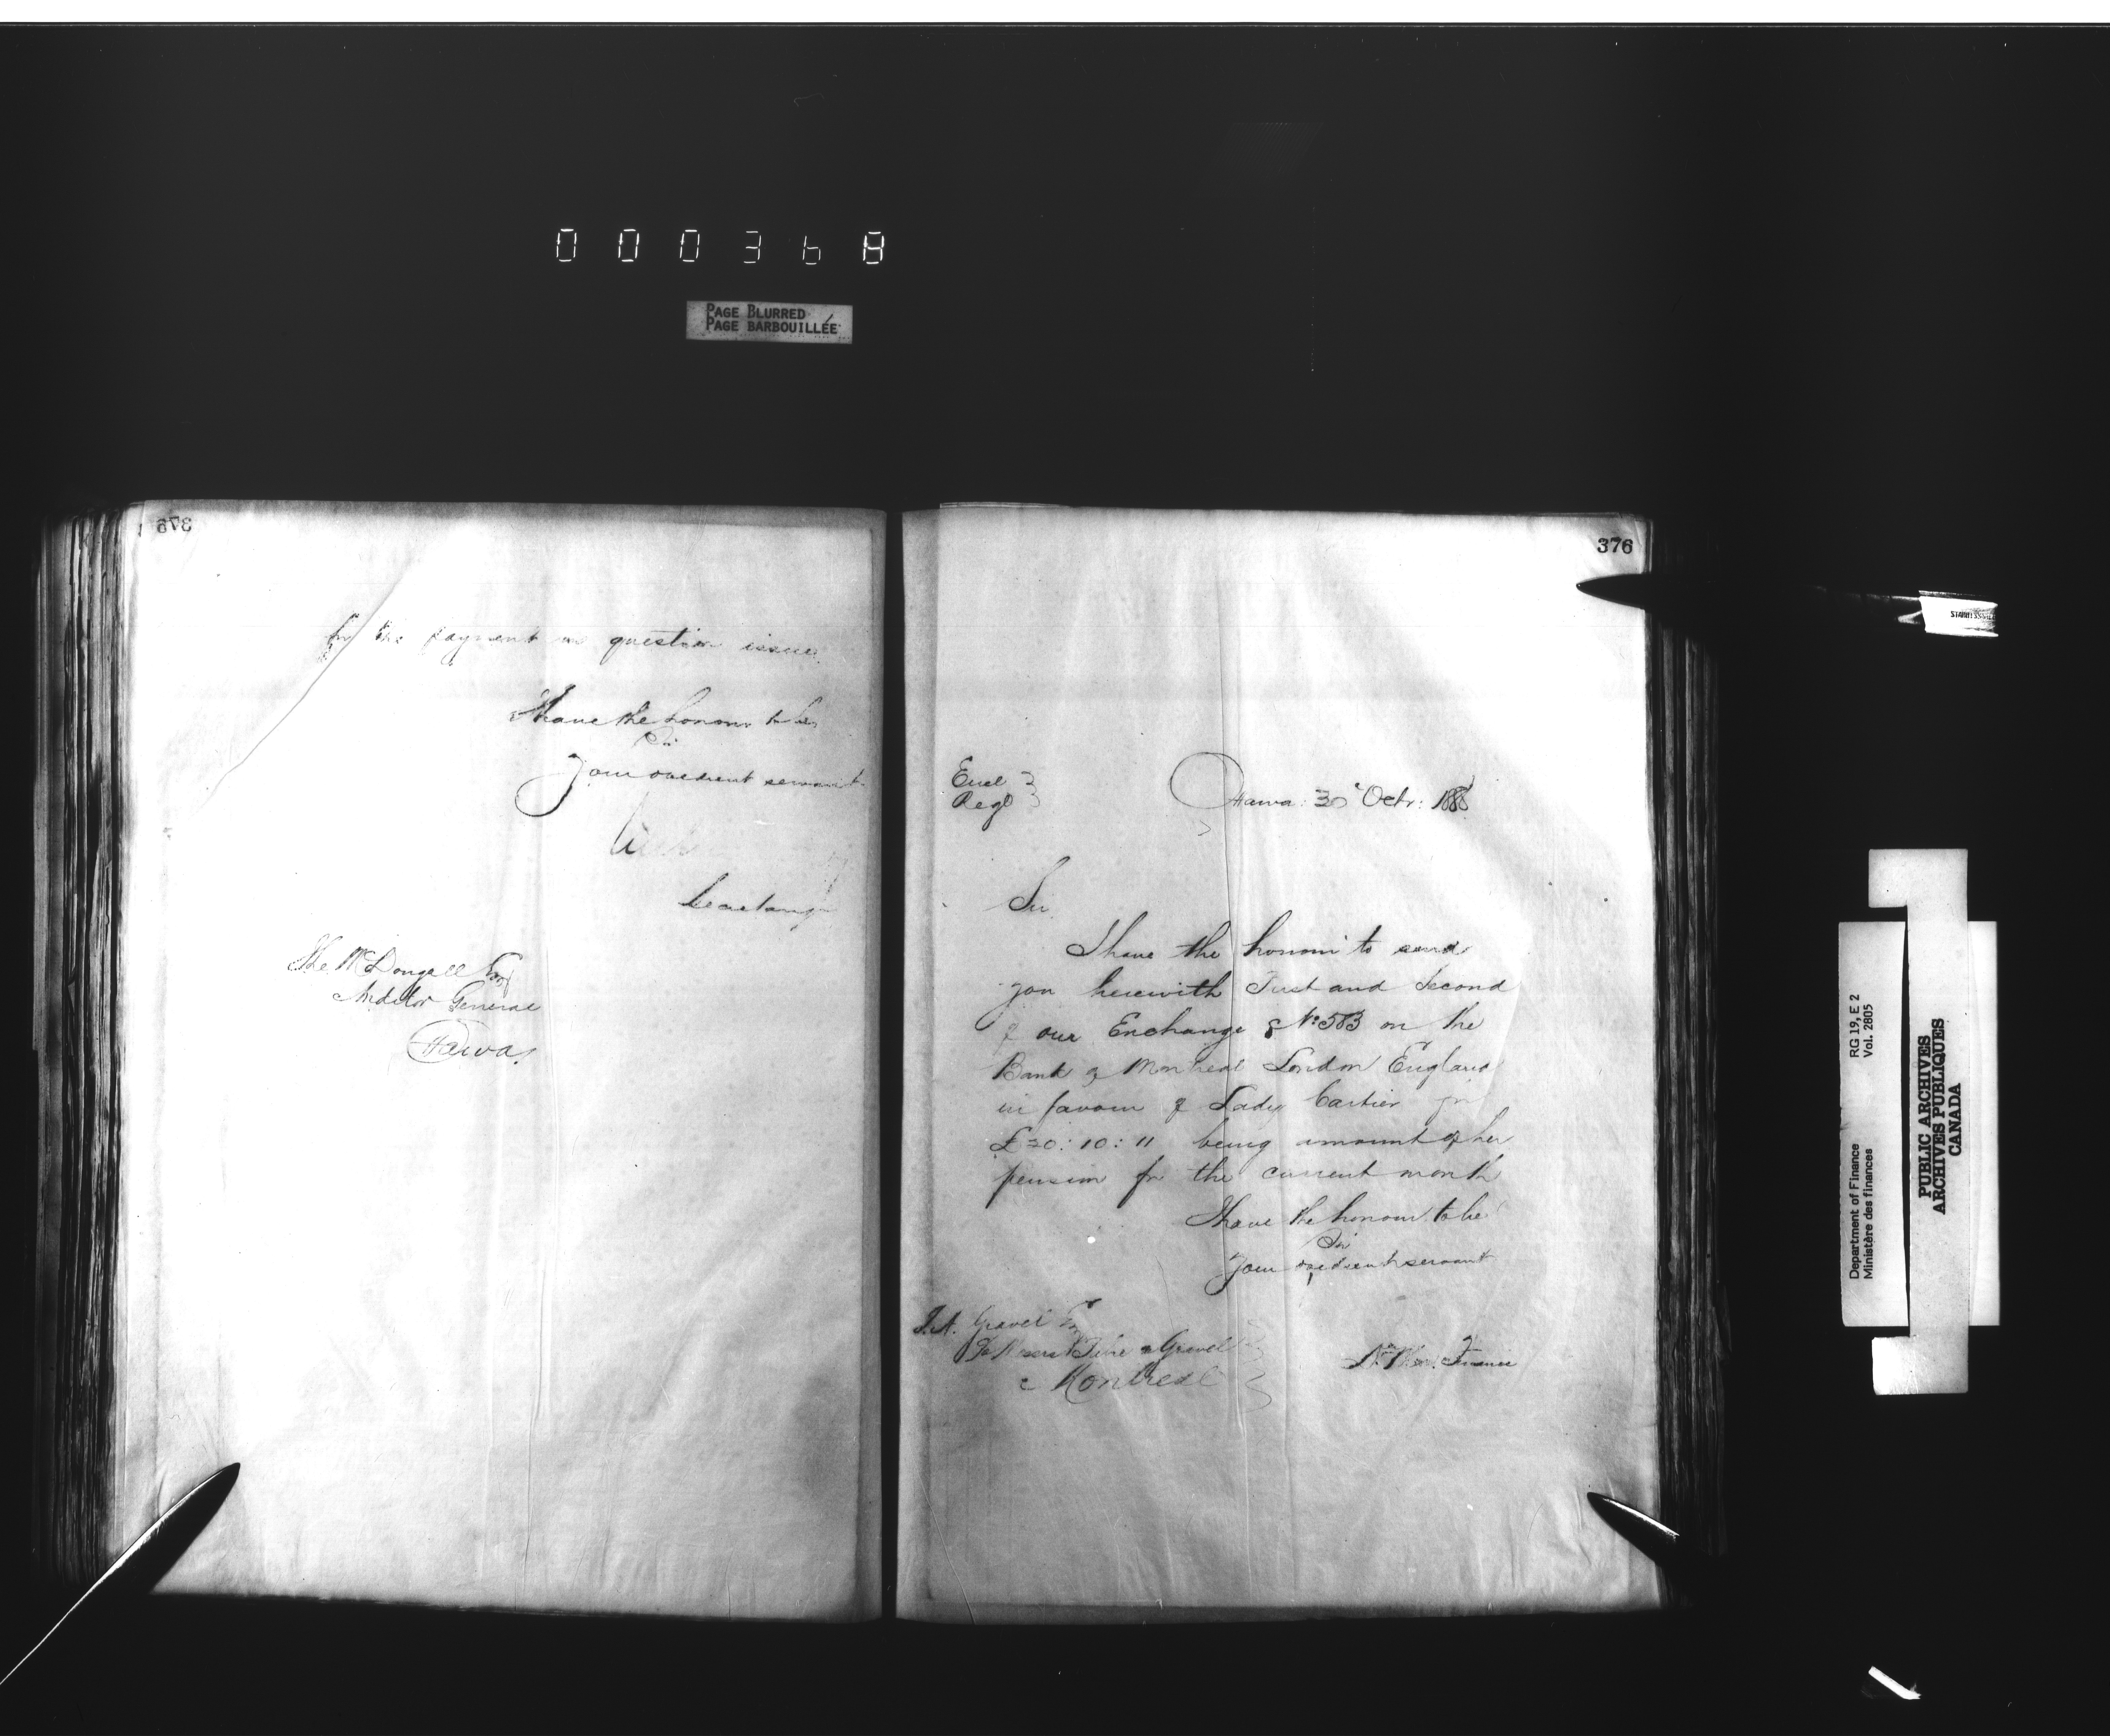 000368
PAGE BLURRED
PAGE BARBOUILLÉE
375
for the payment in question issue.
I have the honour to be,
Sir
Your obedient servant
Secretary
McDougall Esq
Auditor General
Ottawa.
376
Encl
Regd
Ottawa: 30 Octr: 1888
Sir
I have the honour to send
you herewith First and Second
of our Exchange No 583 on the
Bank of Montreal London England
in favour of Lady Cartier for
£20:10:11 being amount of her
pension for the current month
I have the honour to be
Sir
Your obedient servant
J.A. Gravel Esq
Gravel
Montreal
Finance
RG 19, E 2
Vol. 2805
Department of Finance
Ministère des finances
PUBLIC ARCHIVES
ARCHIVES PUBLIQUES
CANADA